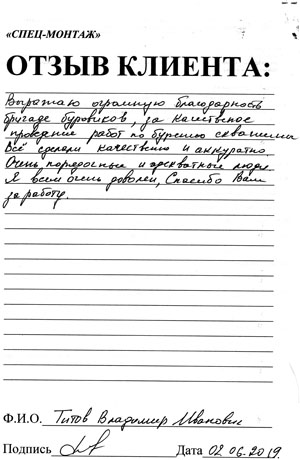 «СПЕЦ-МОНТАЖ»
ОТЗЫВ КЛИЕНТА:
Выражаю огромную благодарность
бригаде буровиков, за качественное
проведение работ по бурению скважины
Всё сделали качественно и аккуратно.
Очень порядочные и адекватные люди.
Я всем очень доволен, Спасибо Вам
за работу.
Ф.И.О. Титов Владимир Иванович
Подпись Дата 02 06.2019